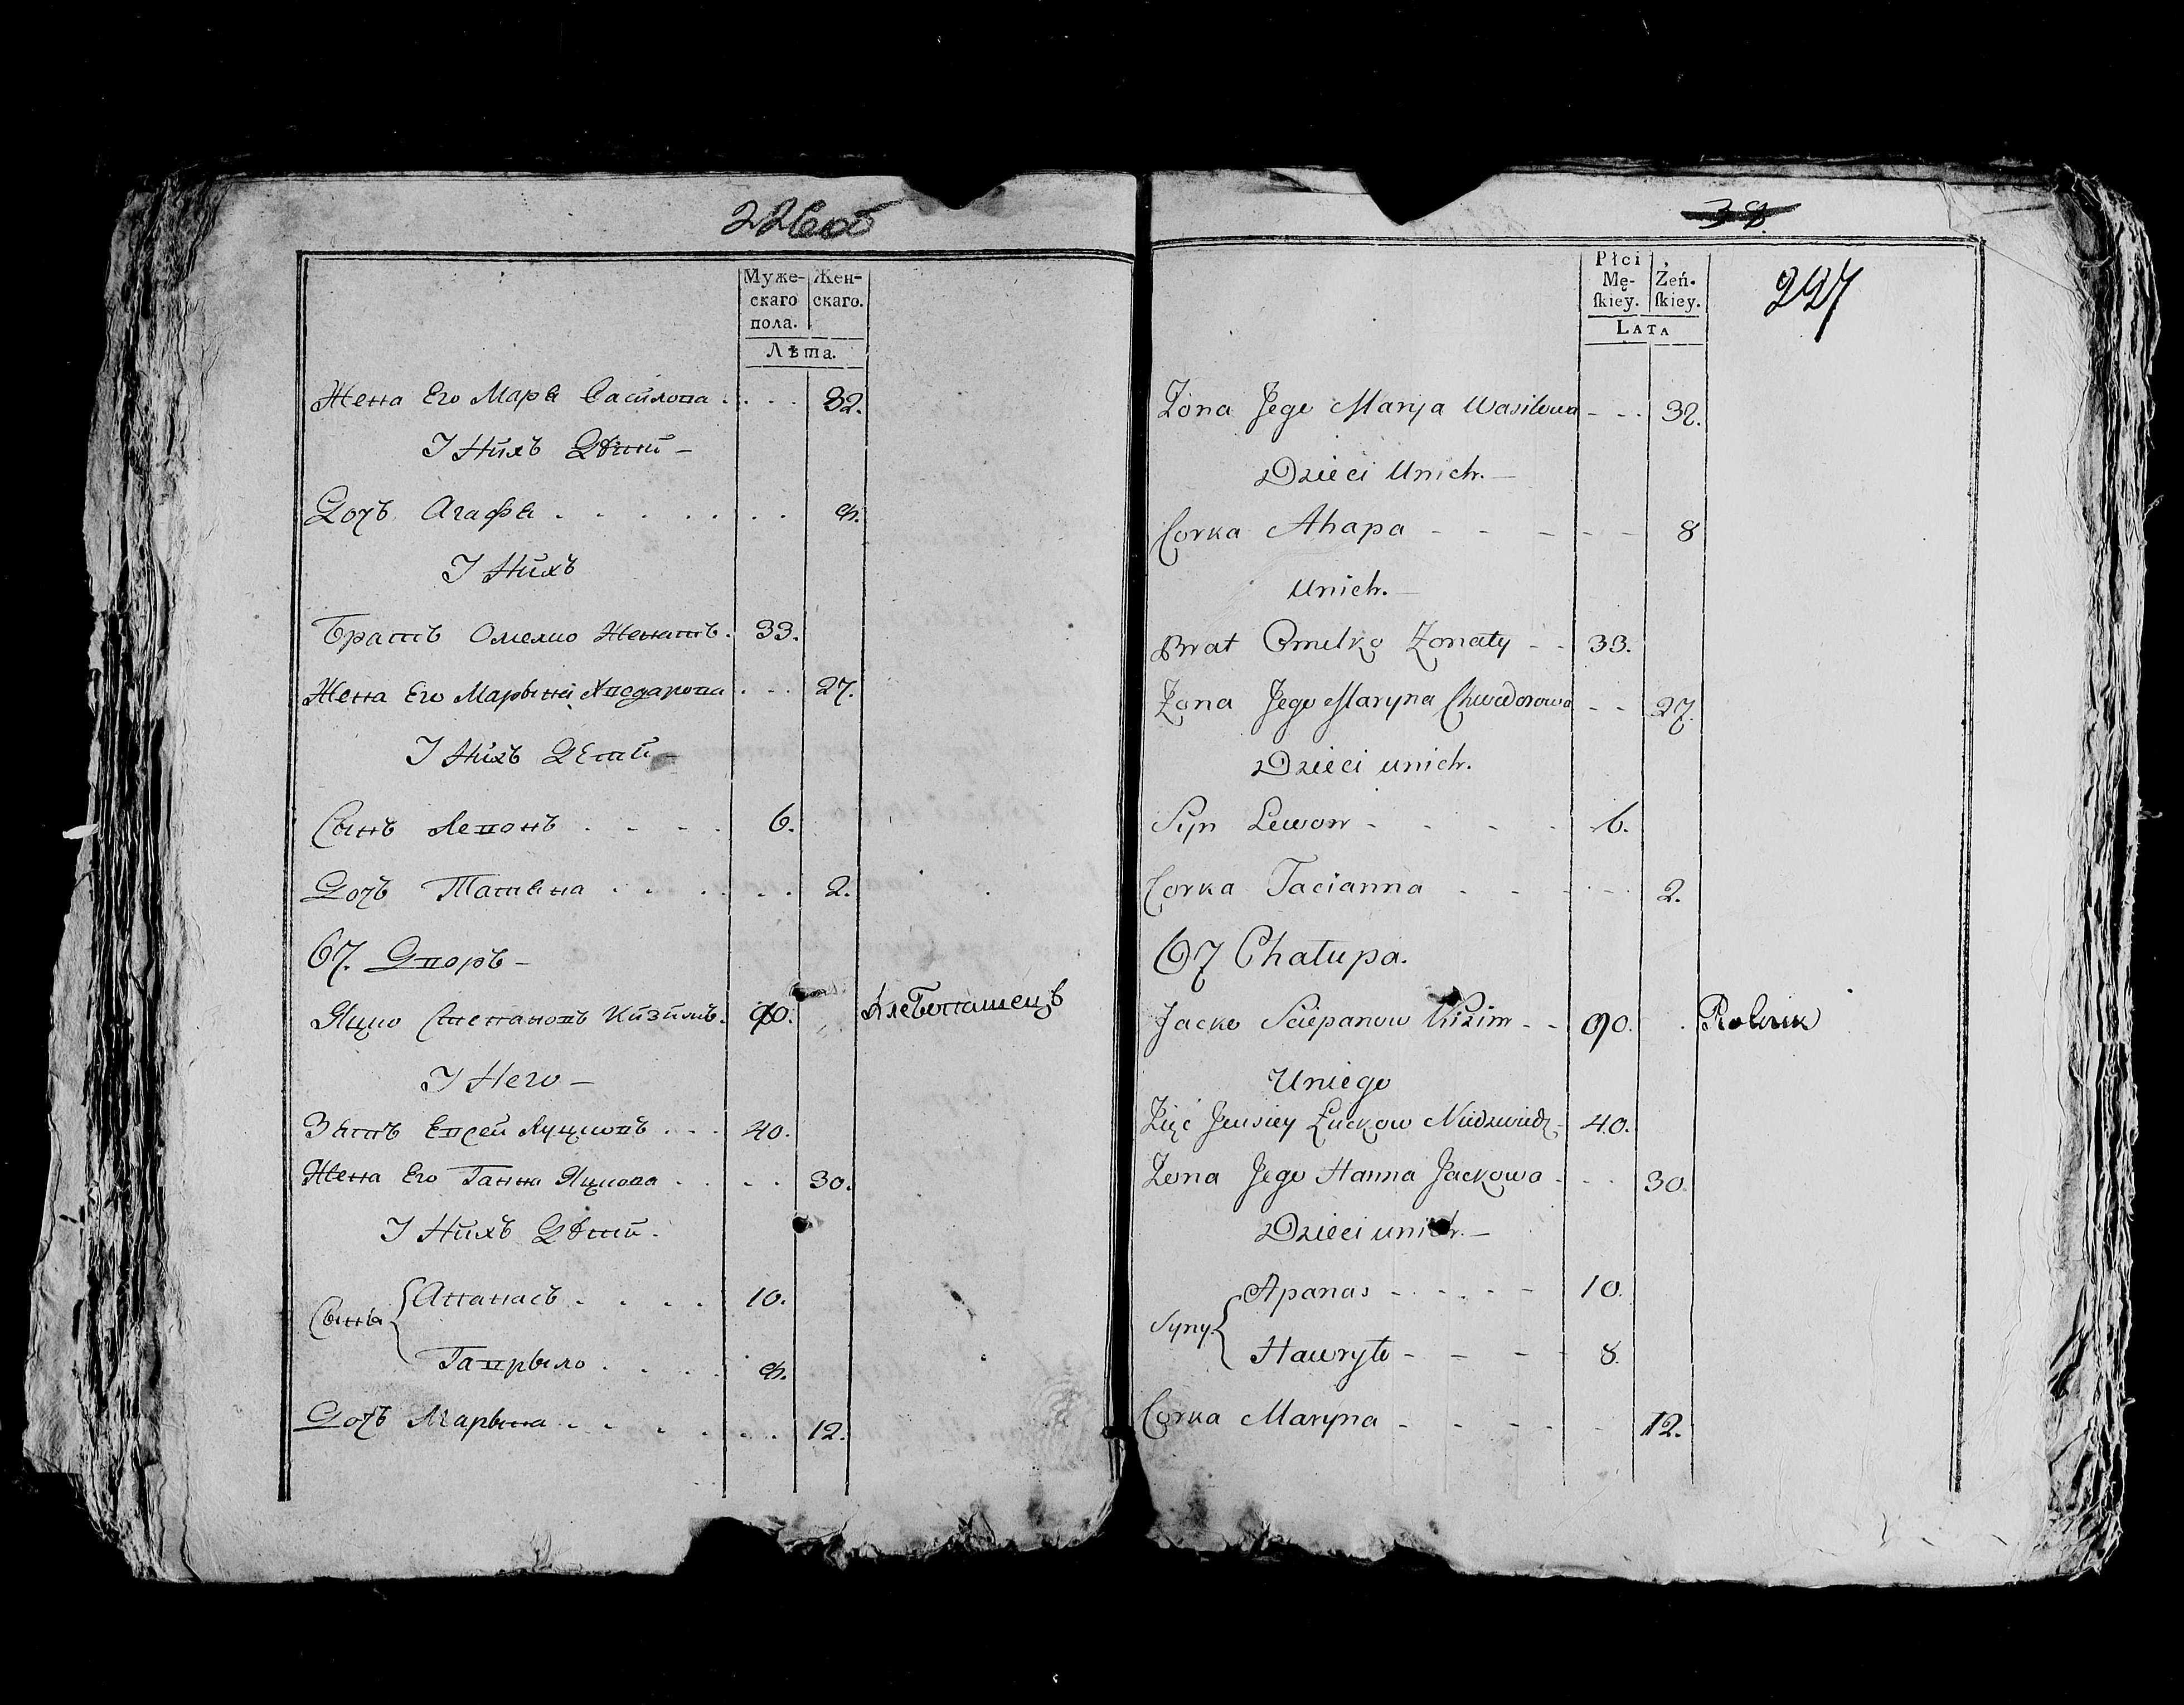 226об
Муже-
скаго
пола.
Жен-
скаго.
Лѣта.
Жена Его Маря Василова . . . . 32.
У Нихъ Дѣти –
Дочь Агафя . . . . . . . 8.
У Нихъ
Братъ Омелко Женатъ. 33.
Жена Его Марына Хведарова . . . 27.
У Нихъ Дети –
Сынъ Левонъ . . . . 6.
Дочь Татяна . . . . . . 2.
67. Дворъ –
Яцко Степановъ Кизимъ. 90. Хлебопашецъ
У Него –
Зять Евсей Луцковъ . . . 40.
Жена Его Ганна Яцкова . . . . 30.
У Нихъ Дѣти.
Сыны { Апанасъ . . . . 10.
Гаврыло . . . . 8.
Дочь Марына . . . . . . 12.
38.
227
Płci
Mę-
ſkiey.
Żeń-
ſkiey.
LATA
Żona Jego Marya Wasilowa - - - 32.
Dzieci Unich. –
Corka Ahapa - - - - - 8
Unich. –
Brat Omelko Żonaty - - 33.
Żona Jego Maryna Chwedorowa - - 27.
Dzieci unich.
Syn Lewon - - - - 6.
Corka Tacianna - - - - - 2.
67 Chałupa.
Jacko Sciepanow Kizim - - 90. Rolnik
Uniego
Zięć Jewsiey Łuckow Niedzwiedz - 40.
Żona Jego Hanna Jackowa - - - 30.
Dzieci unich. –
Syny { Apanas - - - - - 10.
Hawryło - - - - 8.
Corka Maryna - - - - - 12.